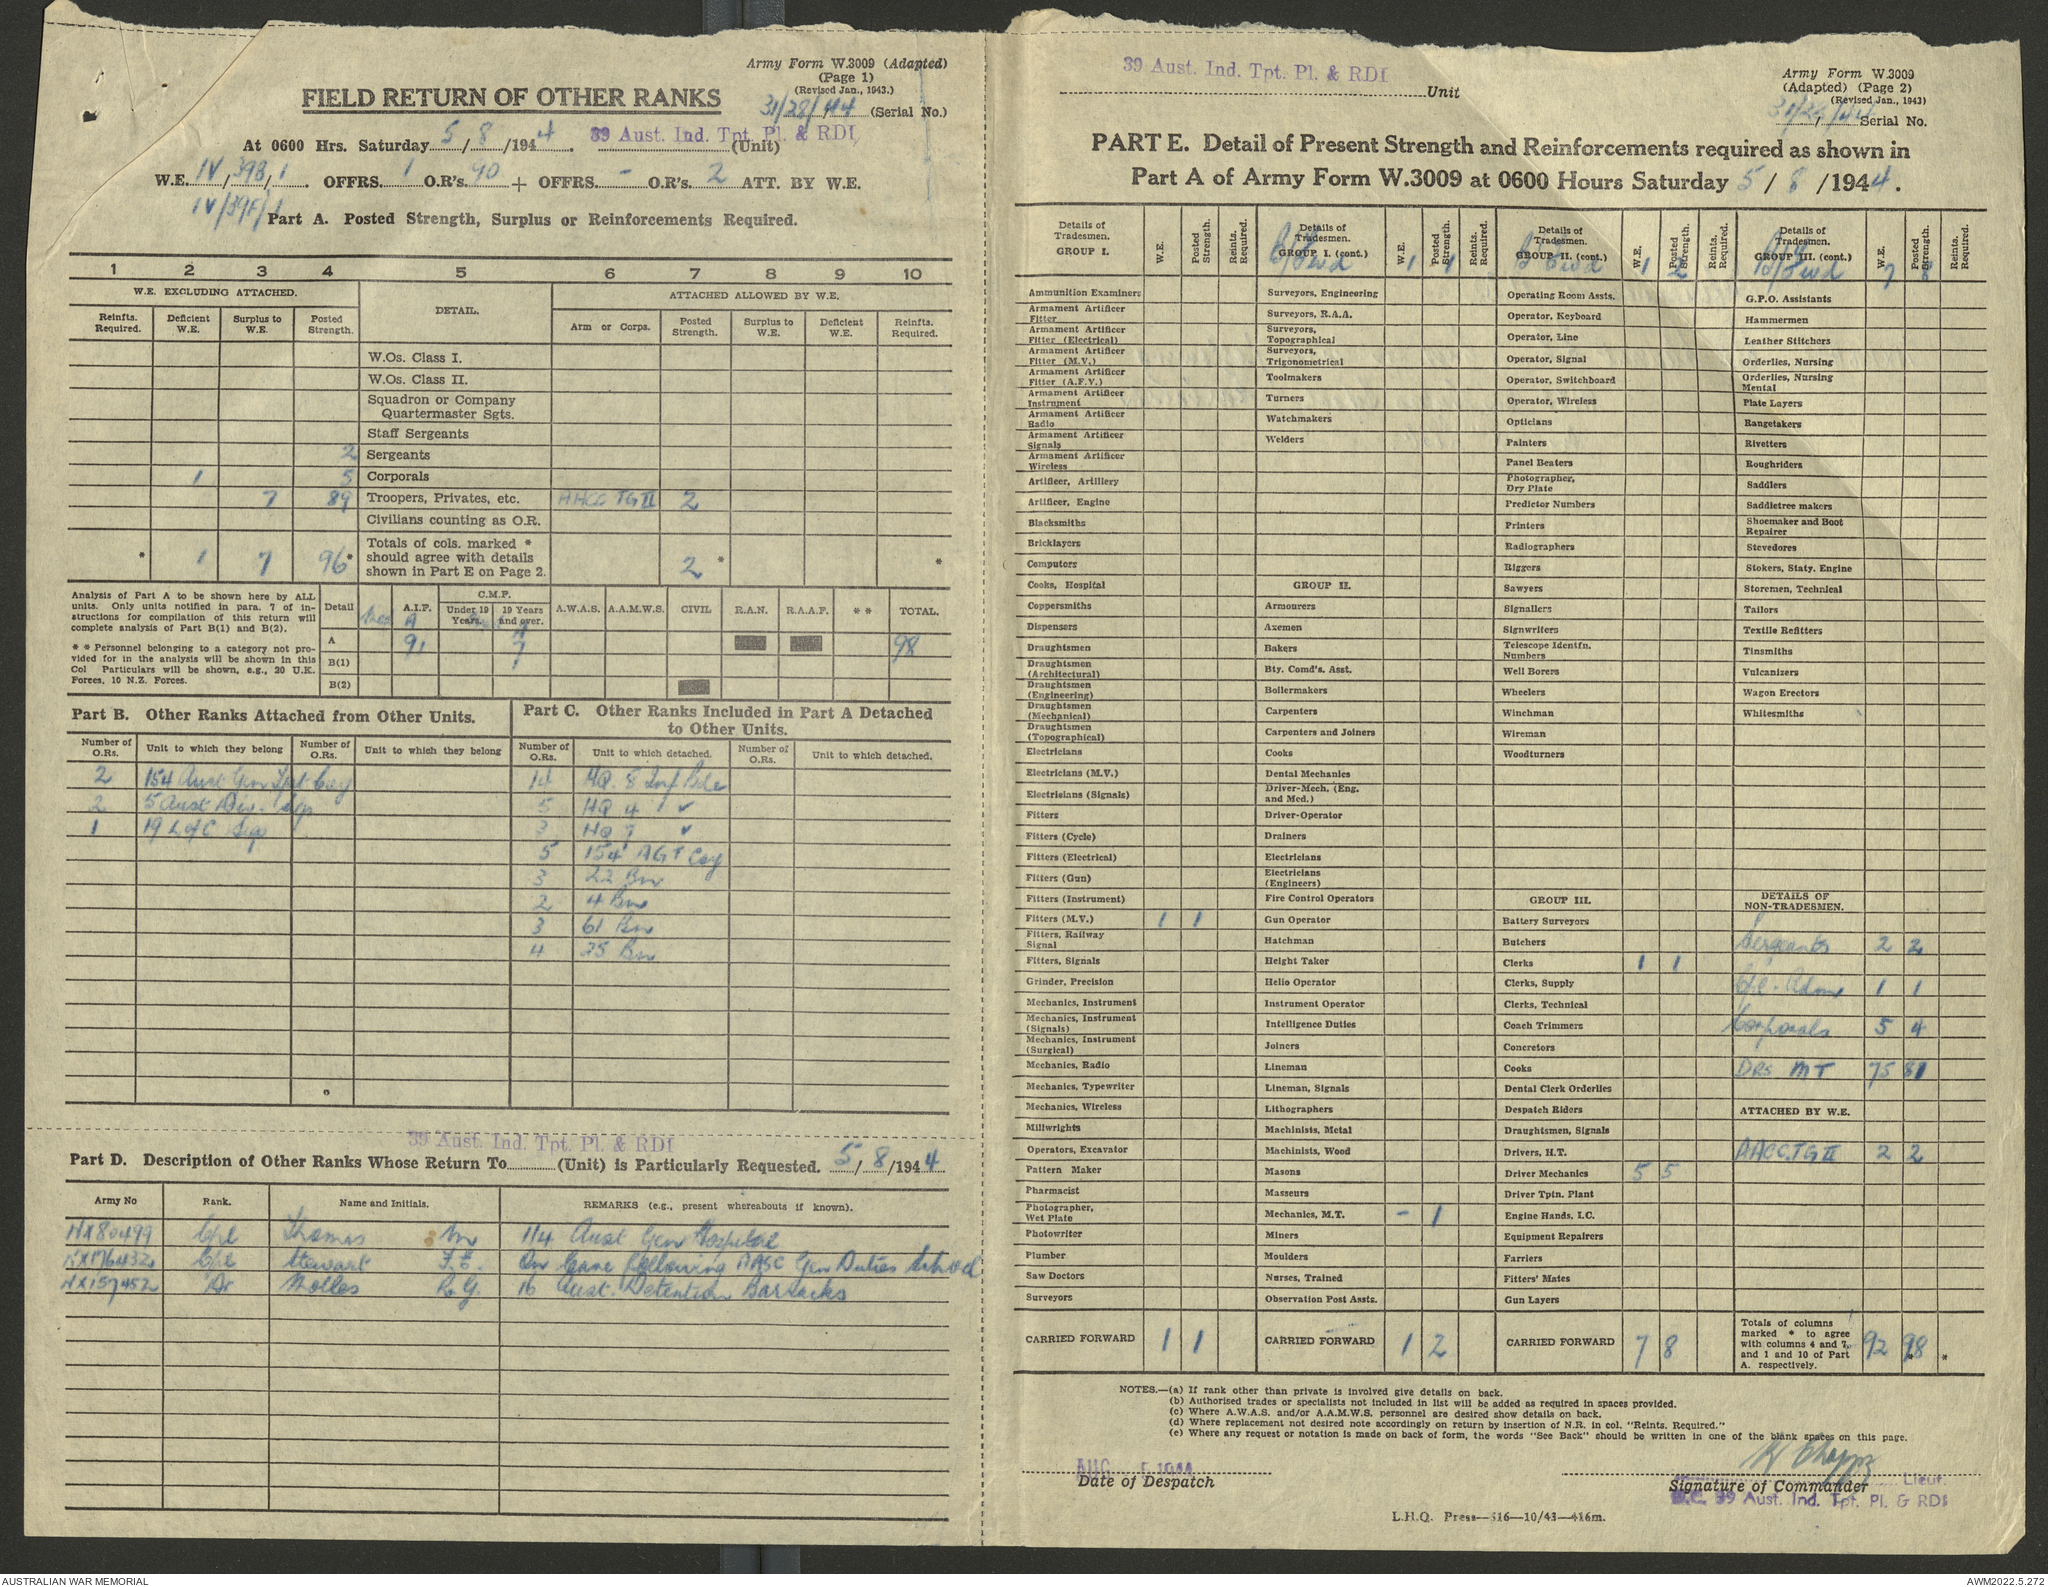 Army Form W.3009 (Adapted)
(Page 1)
(Revised Jan., 1943.)
FIELD RETURN OF OTHER RANKS
31/28/44 (Serial No.)
At 0600 Hrs. Saturday 5/8/1944. 39 Aust. Ind. Tpt. Pl. & RDI (Unit)
W.E. IV/39B/1. OFFRS. 1 O.R's. 90 + OFFRS. - O.R's. 2 ATT. BY W.E.
IV/39F/1
Part A. Posted Strength, Surplus or Reinforcements Required.
1 2 3 4 5 6 7 8 9 10
W.E. EXCLUDING ATTACHED. DETAIL. ATTACHED ALLOWED BY W.E.
Reinfts. Required. Deficient W.E. Surplus to W.E. Posted Strength. Arm or Corps. Posted Strength. Surplus to W.E. Deficient W.E. Reinfts. Required.
W.Os. Class I.
W.Os. Class II.
Squadron or Company
Quartermaster Sgts.
Staff Sergeants
2 Sergeants
1 5 Corporals
7 89 Troopers, Privates, etc. AACC TG II 2
Civilians counting as O.R.
Totals of cols. marked *
should agree with details
shown in Part E on Page 2.
* 1 7 96* 2 * *
Analysis of Part A to be shown here by ALL
units. Only units notified in para. 7 of in-
structions for compilation of this return will
complete analysis of Part B(1) and B(2).
* * Personnel belonging to a category not pro-
vided for in the analysis will be shown in this
Col Particulars will be shown, e.g., 20 U.K.
Forces, 10 N.Z. Forces.
Detail A.I.F. C.M.F. Under 19 Years. 19 Years and over. A.W.A.S. A.A.M.W.S. CIVIL R.A.N. R.A.A.F. * * TOTAL.
A 91 7 98
B(1)
B(2)
Part B. Other Ranks Attached from Other Units.
Number of O.Rs. Unit to which they belong Number of O.Rs. Unit to which they belong
2 154 Aust Gen Tpt Coy
2 5 Aust Div. Sigs
1 19 L of C Sigs
Part C. Other Ranks Included in Part A Detached
to Other Units.
Number of O.Rs. Unit to which detached. Number of O.Rs. Unit to which detached.
14 HQ. 8 Inf Bde
5 HQ 4 " ✓
3 HQ 7 ✓
5 154 AGT Coy
3 22 Bn
2 4 Bn
3 61 Bn
4 35 Bn
39 Aust. Ind. Tpt. Pl. & RDI
Part D. Description of Other Ranks Whose Return To (Unit) is Particularly Requested. 5/8/1944
Army No Rank. Name and Initials. REMARKS (e.g., present whereabouts if known).
NX80499 Cpl Thomas 114 Aust Gen Hospital
NX176432 Cpl Stewart F.E. On Leave following AASC Gen Duties School
NX157452 Dr R.G. 16 Aust. Detention Barracks
39 Aust. Ind. Tpt. Pl. & RDI
Unit
Army Form W.3009
(Adapted) (Page 2)
(Revised Jan., 1943)
31/28/44 Serial No.
PART E. Detail of Present Strength and Reinforcements required as shown in
Part A of Army Form W.3009 at 0600 Hours Saturday 5/8/1944.
Details of Tradesmen. GROUP I. W.E. Posted Strength. Reints. Required.
Ammunition Examiners
Armament Artificer Fitter
Armament Artificer Fitter (Electrical)
Armament Artificer Fitter (M.V.)
Armament Artificer Fitter (A.F.V.)
Armament Artificer Instrument
Armament Artificer Radio
Armament Artificer Signals
Armament Artificer Wireless
Artificer, Artillery
Artificer, Engine
Blacksmiths
Bricklayers
Computors
Cooks, Hospital
Coppersmiths
Dispensers
Draughtsmen
Draughtsmen (Architectural)
Draughtsmen (Engineering)
Draughtsmen (Mechanical)
Draughtsmen (Topographical)
Electricians
Electricians (M.V.)
Electricians (Signals)
Fitters
Fitters (Cycle)
Fitters (Electrical)
Fitters (Gun)
Fitters (Instrument)
Fitters (M.V.) 1 1
Fitters, Railway Signal
Fitters, Signals
Grinder, Precision
Mechanics, Instrument
Mechanics, Instrument (Signals)
Mechanics, Instrument (Surgical)
Mechanics, Radio
Mechanics, Typewriter
Mechanics, Wireless
Millwrights
Operators, Excavator
Pattern Maker
Pharmacist
Photographer, Wet Plate
Photowriter
Plumber
Saw Doctors
Surveyors
CARRIED FORWARD 1 1
Details of Tradesmen. GROUP I. (cont.) W.E. Posted Strength. Reints. Required.
B/Fwd 1 1
Surveyors, Engineering
Surveyors, R.A.A.
Surveyors, Topographical
Surveyors, Trigonometrical
Toolmakers
Turners
Watchmakers
Welders
GROUP II.
Armourers
Axemen
Bakers
Bty. Comd's. Asst.
Boilermakers
Carpenters
Carpenters and Joiners
Cooks
Dental Mechanics
Driver-Mech. (Eng. and Med.)
Driver-Operator
Drainers
Electricians
Electricians (Engineers)
Fire Control Operators
Gun Operator
Hatchman
Height Taker
Helio Operator
Instrument Operator
Intelligence Duties
Joiners
Lineman
Lineman, Signals
Lithographers
Machinists, Metal
Machinists, Wood
Masons
Masseurs
Mechanics, M.T. - 1
Miners
Moulders
Nurses, Trained
Observation Post Assts.
CARRIED FORWARD 1 2
Details of Tradesmen. GROUP II. (cont.) W.E. Posted Strength. Reints. Required.
B/Fwd 1 2
Operating Room Assts.
Operator, Keyboard
Operator, Line
Operator, Signal
Operator, Switchboard
Operator, Wireless
Opticians
Painters
Panel Beaters
Photographer, Dry Plate
Predictor Numbers
Printers
Radiographers
Riggers
Sawyers
Signallers
Signwriters
Telescope Identfn. Numbers
Well Borers
Wheelers
Winchman
Wireman
Woodturners
GROUP III.
Battery Surveyors
Butchers
Clerks 1 1
Clerks, Supply
Clerks, Technical
Coach Trimmers
Concretors
Cooks
Dental Clerk Orderlies
Despatch Riders
Draughtsmen, Signals
Drivers, H.T.
Driver Mechanics 5 5
Driver Tptn. Plant
Engine Hands, I.C.
Equipment Repairers
Farriers
Fitters' Mates
Gun Layers
CARRIED FORWARD 7 8
Details of Tradesmen. GROUP III. (cont.) W.E. Posted Strength. Reints. Required.
B/Fwd 7 8
G.P.O. Assistants
Hammermen
Leather Stitchers
Orderlies, Nursing
Orderlies, Nursing Mental
Plate Layers
Rangetakers
Rivetters
Roughriders
Saddlers
Saddletree makers
Shoemaker and Boot Repairer
Stevedores
Stokers, Staty. Engine
Storemen, Technical
Tailors
Textile Refitters
Tinsmiths
Vulcanizers
Wagon Erectors
Whitesmiths
DETAILS OF NON-TRADESMEN.
Sergeants 2 2
1 1
Corporals 5 4
DRS MT 75 81
ATTACHED BY W.E.
AACC.TG II 2 2
Totals of columns
marked * to agree
with columns 4 and 7,
and 1 and 10 of Part
A. respectively. 92 98 *
NOTES.—(a) If rank other than private is involved give details on back.
(b) Authorised trades or specialists not included in list will be added as required in spaces provided.
(c) Where A.W.A.S. and/or A.A.M.W.S. personnel are desired show details on back.
(d) Where replacement not desired note accordingly on return by insertion of N.R. in col. "Reints. Required."
(e) Where any request or notation is made on back of form, the words "See Back" should be written in one of the blank spaces on this page.
AUG 5 1944
Date of Despatch
Lieut.
Signature of Commander
O.C. 39 Aust. Ind. Tpt. Pl. & RDI
L.H.Q. Press—516—10/43—416m.
AUSTRALIAN WAR MEMORIAL
AWM2022.5.272